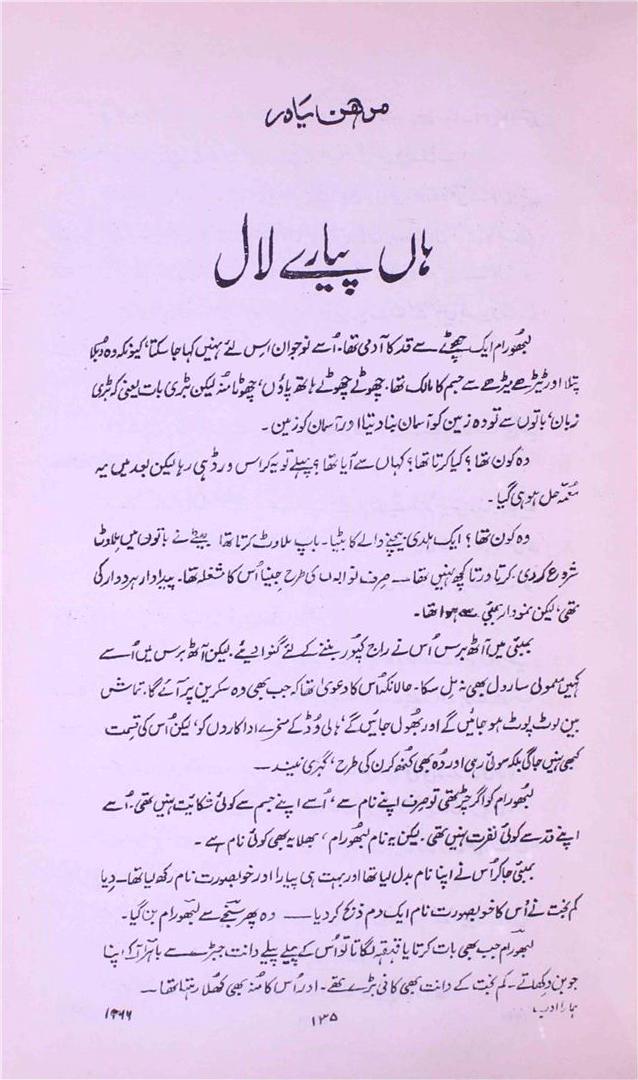 موہن یاور
ہاں پیارے لال
لبھورام ایک چھوٹے سے قد کا آدمی تھا۔ اُسے نوجوان اس لئے نہیں کہا جا سکتا‘ کیونکہ وہ دُبلا
پتلا اور ٹیڑھے میڑھے سے جسم کا مالک تھا۔ چھوٹے چھوٹے ہاتھ پاؤں‘ چھوٹا منہ لیکن بڑی بات یعنی کہ بڑی
زبان‘ باتوں سے تو وہ زمین کو آسمان بنا دیتا اور آسمان کو زمین۔
وہ کون تھا؟ کیا کرتا تھا؟ کہاں سے آیا تھا؟ پہلے تو یہ کراس ورڈ ہی رہا لیکن بعد میں یہ
معمّہ حل ہو ہی گیا۔
وہ کون تھا؟ ایک ہلدی بیچنے والے کا بیٹا۔ باپ ملاوٹ کرتا تھا بیٹے نے باتوں میں ملاوٹ
شروع کر دی۔ کرتا ورتا کچھ نہیں تھا — صرف نوابوں کی طرح جینا اُس کا مشغلہ تھا۔ پیداوار ہردوار کی
تھی‘ لیکن نمودار بمبئی سے ہوا تھا۔
بمبئی میں آٹھ برس اُس نے راج کپور بننے کے لئے گنوا دیئے۔ لیکن آٹھ برس میں اُسے
کہیں معمولی سا رول بھی نہ مل سکا۔ حالانکہ اُس کا دعویٰ تھا کہ جب بھی وہ سکرین پر آئے گا۔ تماش
بین لوٹ پوٹ ہو جائیں گے اور بھول جائیں گے‘ ہالی وُڈ کے مسخرے اداکاروں کو‘ لیکن اُس کی قسمت
کبھی نہیں جاگی بلکہ سوئی رہی اور وُہ بھی کنبھ کرن کی طرح‘ گہری نیند —
لبھورام کو اگر چِڑ تھی تو صرف اپنے نام سے‘ اُسے اپنے جسم سے کوئی شکایت نہیں تھی۔ اُسے
اپنے قد سے کوئی نفرت نہیں تھی۔ لیکن یہ نام لبھورام‘ بھلا یہ بھی کوئی نام ہے۔
بمبئی جا کر اُس نے اپنا نام بدل لیا تھا اور بہت ہی پیارا اور خوبصورت نام رکھ لیا تھا۔
کم بخت نے اُس کا خوبصورت نام ایک دم ذبح کر دیا — وہ پھر سے لبھورام بن گیا۔
لبھورام جب بھی بات کرتا یا قہقہہ لگاتا تو اُس کے پیلے پیلے دانت جبڑے سے باہر آ کے اپنا
جوبن دکھلاتے۔ کم بخت کے دانت بھی کافی بڑے تھے۔ اور اُس کا منہ بھی کھلا رہتا تھا —
ہمارا ادب
۱۳۵
۱۹۶۶